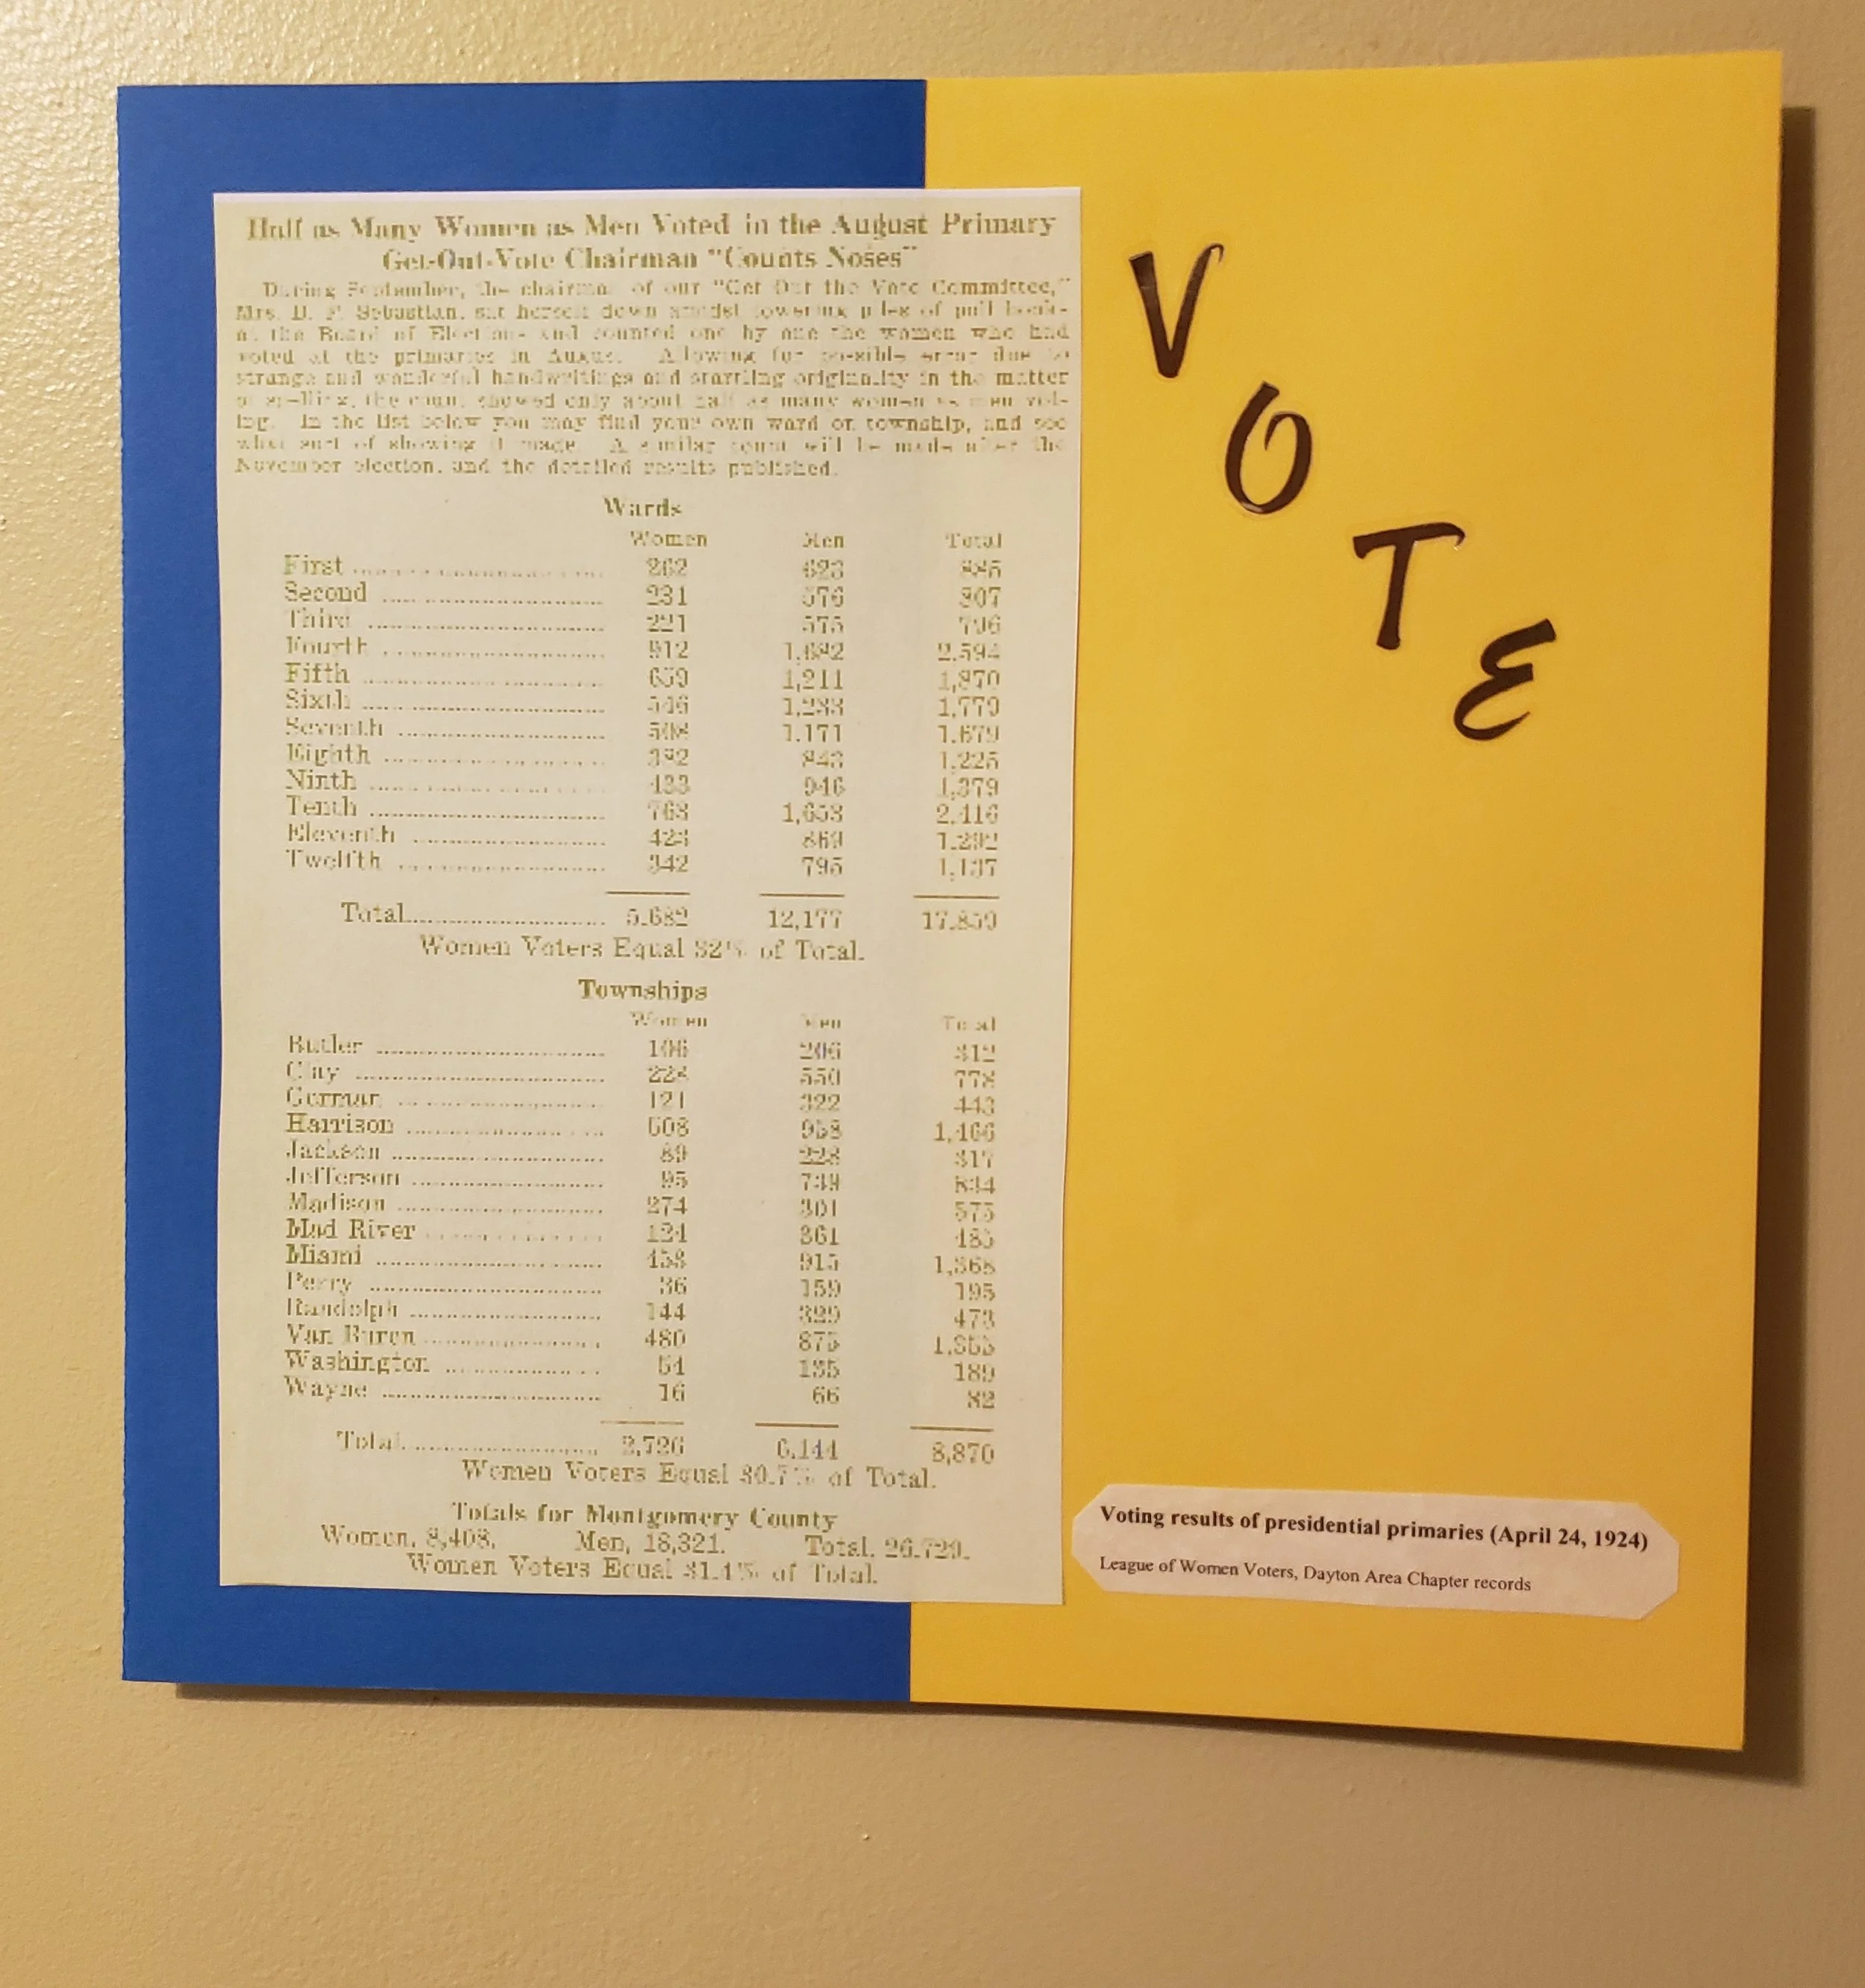 Half as Many Women as Men Voted in the August Primary
Get-Out-Vote Chairman "Counts Noses"
During September, the chairman of our "Get Out the Vote Committee,"
Mrs. D. F. Sebastian, sat herself down amidst towering piles of poll books
at the Board of Elections and counted one by one the women who had
voted at the primaries in August. Allowing for possible error due to
strange and wonderful handwritings and startling originality in the matter
of spelling, the count showed only about half as many women as men vot-
ing. In the list below you may find your own ward or township, and see
what sort of showing it made. A similar count will be made after the
November election, and the detailed results published.
Wards
Women Men Total
First 262 623 885
Second 231 576 807
Third 221 575 796
Fourth 912 1,682 2,594
Fifth 659 1,211 1,870
Sixth 546 1,233 1,779
Seventh 508 1,171 1,679
Eighth 382 843 1,225
Ninth 433 946 1,379
Tenth 763 1,653 2,416
Eleventh 423 869 1,292
Twelfth 342 795 1,137
Total 5,682 12,177 17,859
Women Voters Equal 32% of Total.
Townships
Women Men Total
Butler 106 206 312
Clay 228 550 778
German 121 322 443
Harrison 508 958 1,466
Jackson 89 228 317
Jefferson 95 739 834
Madison 274 301 575
Mad River 124 361 485
Miami 453 915 1,368
Perry 36 159 195
Randolph 144 329 473
Van Buren 480 875 1,355
Washington 54 135 189
Wayne 16 66 82
Total 2,726 6,144 8,870
Women Voters Equal 30.7% of Total.
Totals for Montgomery County
Women, 8,408. Men, 18,321. Total, 26,729.
Women Voters Equal 31.4% of Total.
VOTE
Voting results of presidential primaries (April 24, 1924)
League of Women Voters, Dayton Area Chapter records